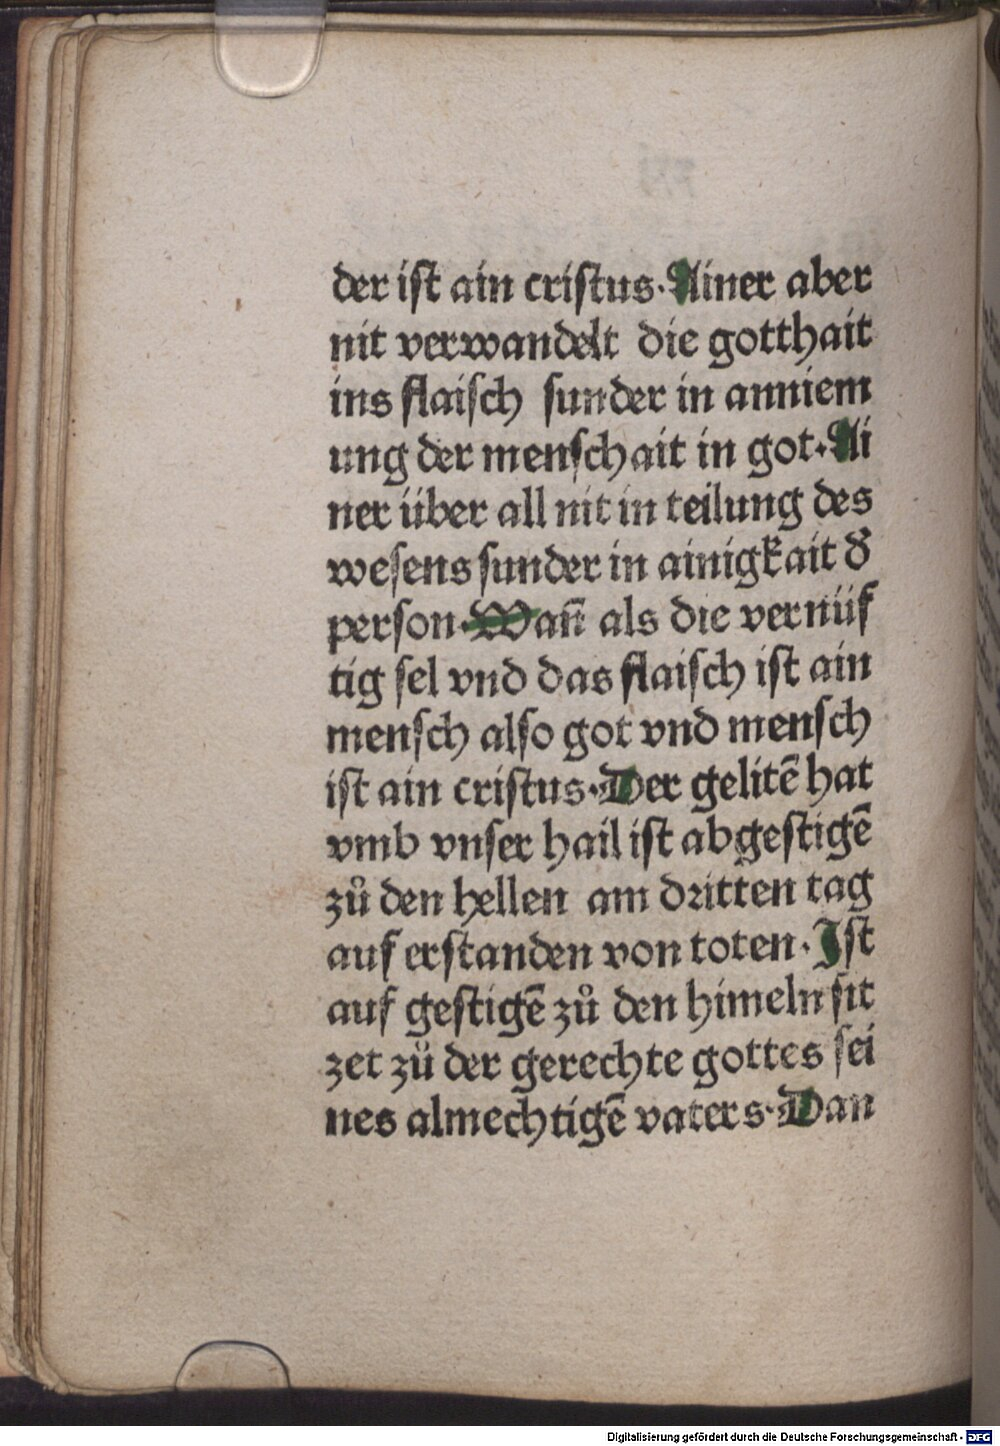 der iſt ain criſtus. Ainer aber
nit verwandelt die gotthait
ins flaiſch ſunder in anniem
ung der menſchait in got. Ai
ner über all nit in teilung des
weſens ſunder in ainigkait d̕
perſon. Wan̄ als die vernüf
tig ſel vnd das flaiſch iſt ain
menſch alſo got vnd menſch
iſt ain criſtus. Der gelitē hat
vmb vnſer hail iſt abgeſtigē
zů den hellen am dritten tag
auf erſtanden von toten. Iſt
auf geſtigē zů den himeln ſit
zet zů der gerechte gottes ſei
nes almechtigē vaters. Dan
Digitalisierung gefördert durch die Deutsche Forschungsgemeinschaft - DFG